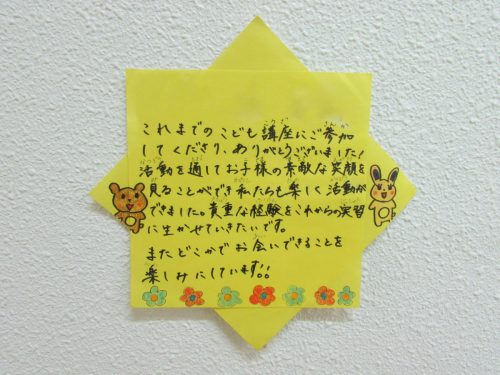 これまでのこども講座にご参加
してくださり、ありがとうございました!
活動を通してお子様の素敵な笑顔を
見ることができ私たちも楽しく活動が
できました。貴重な経験をこれからの実習
に生かせていきたいです。
またどこかでお会いできることを
楽しみにしています!!